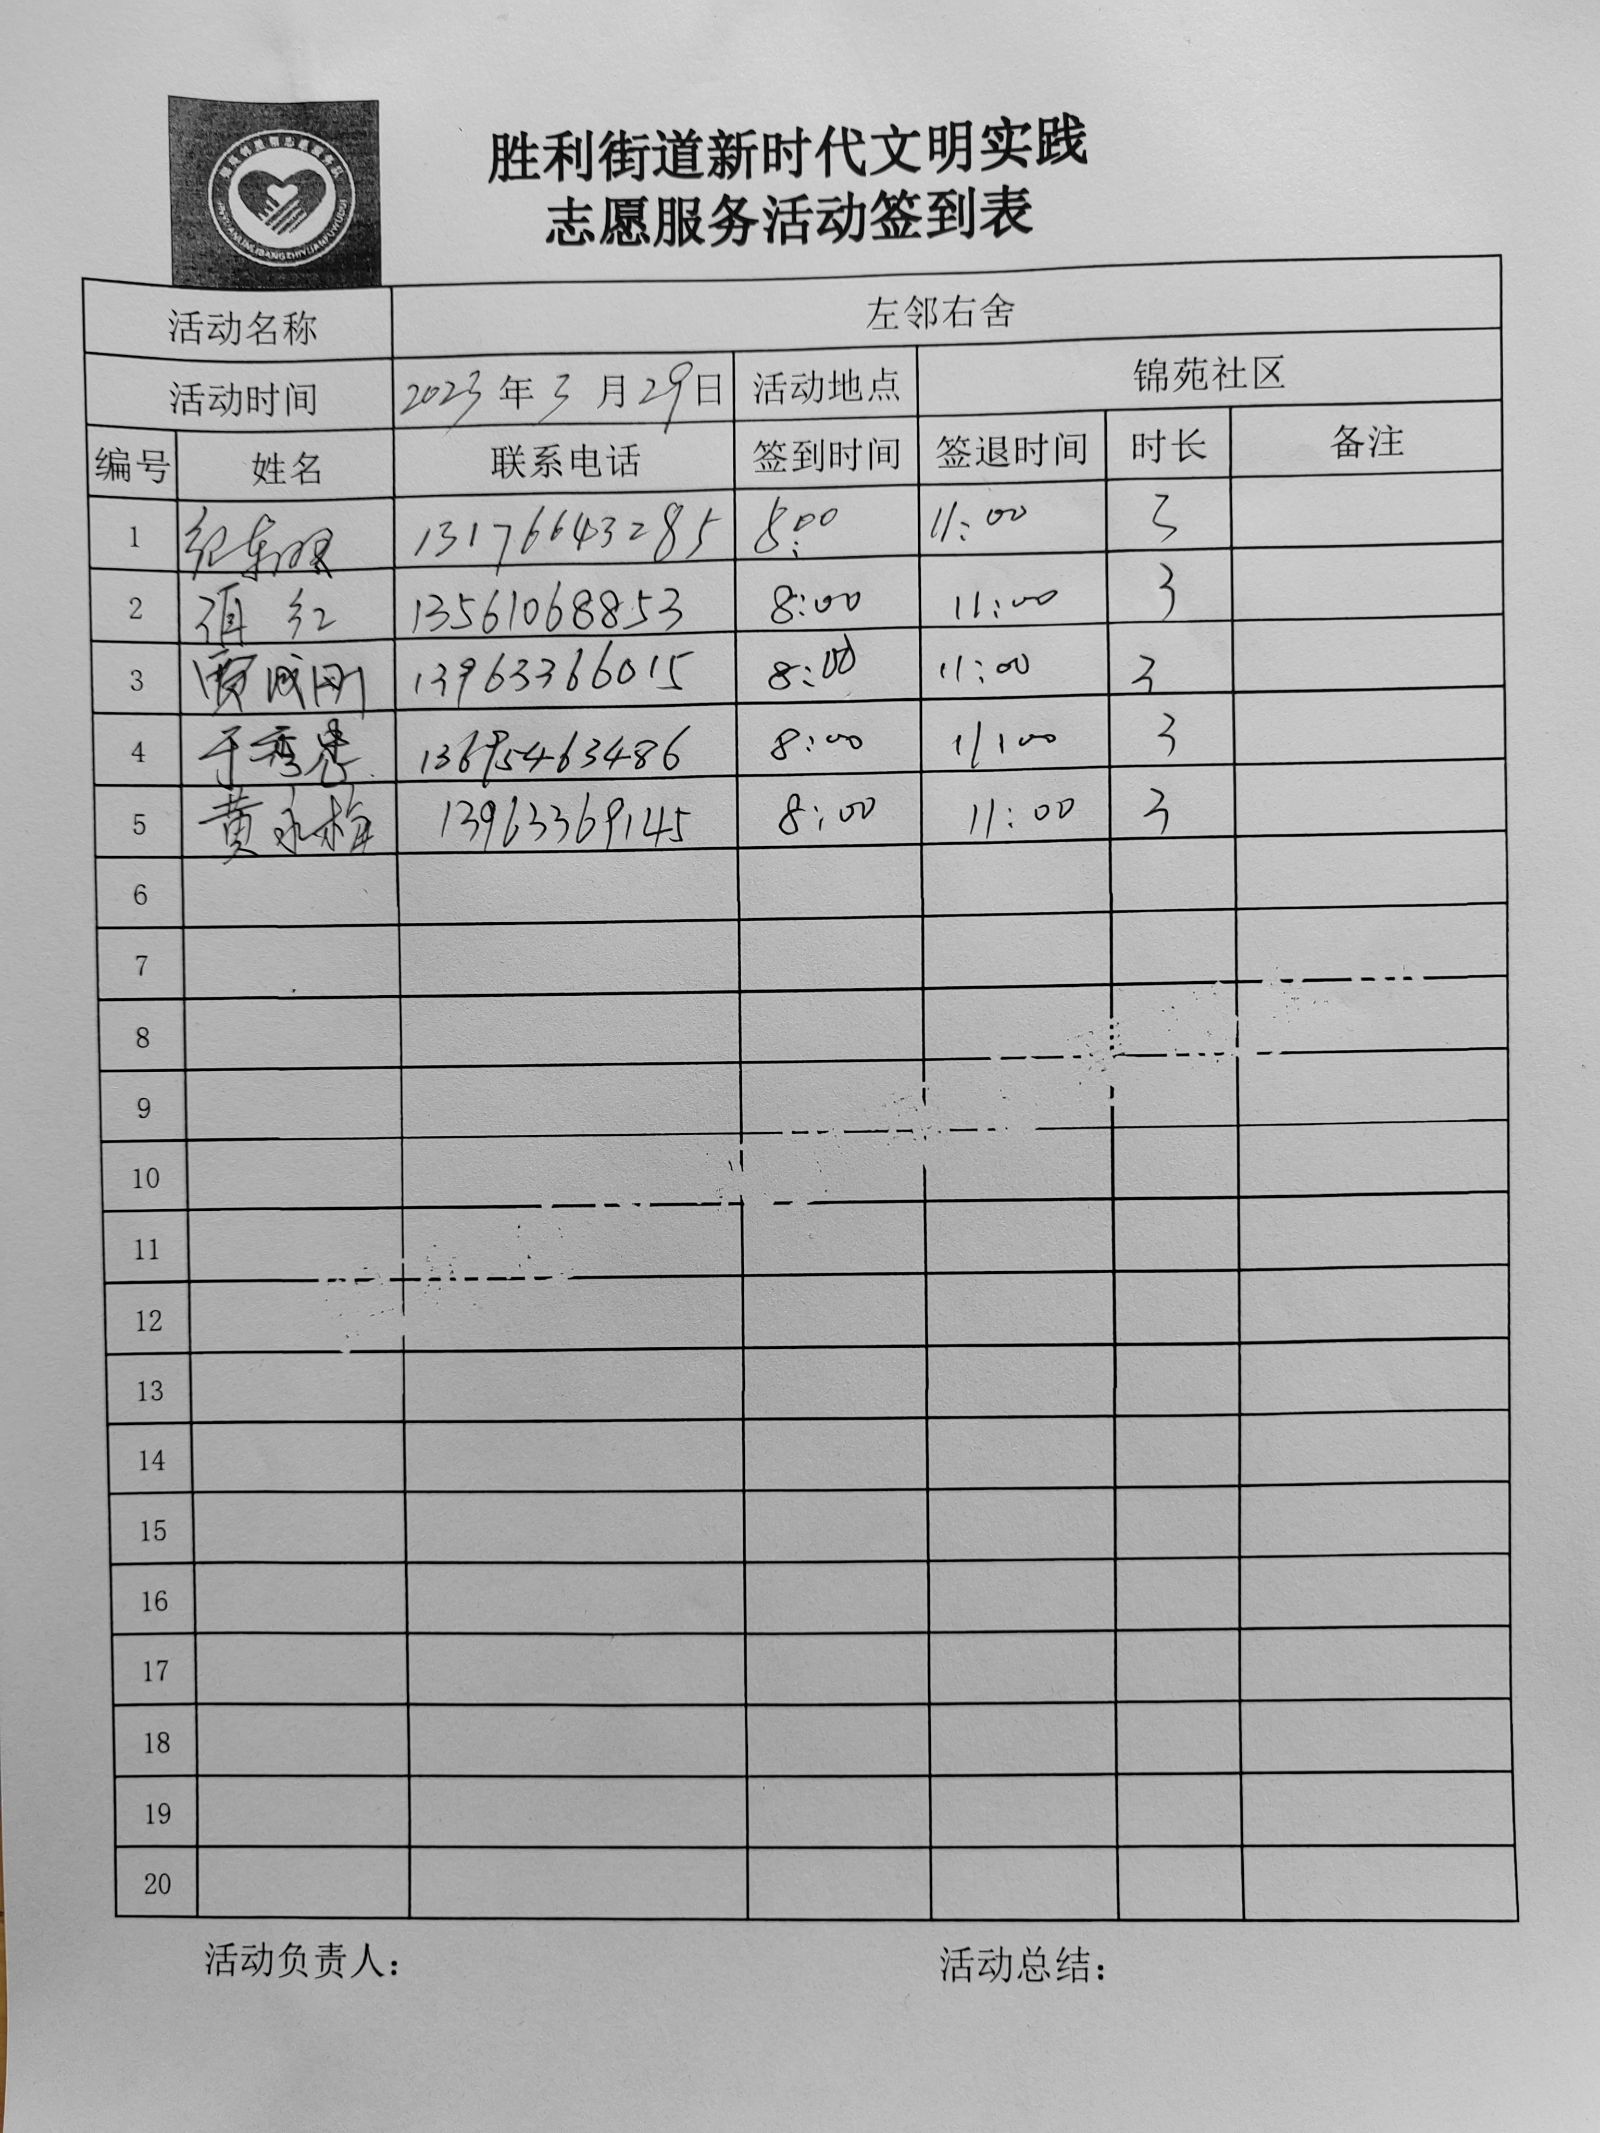 胜利街道新时代文明实践
志愿服务活动签到表
活动名称 左邻右舍
活动时间 2023年3月29日 活动地点 锦苑社区
编号 姓名 联系电话 签到时间 签退时间 时长 备注
1 13176643285 8:00 11:00 3
2 红 13561068853 8:00 11:00 3
3 贾成刚 13963366015 8:00 11:00 3
4 于秀 13695463486 8:00 11:00 3
5 黄永梅 13963369145 8:00 11:00 3
6
7
8
9
10
11
12
13
14
15
16
17
18
19
20
活动负责人: 活动总结: